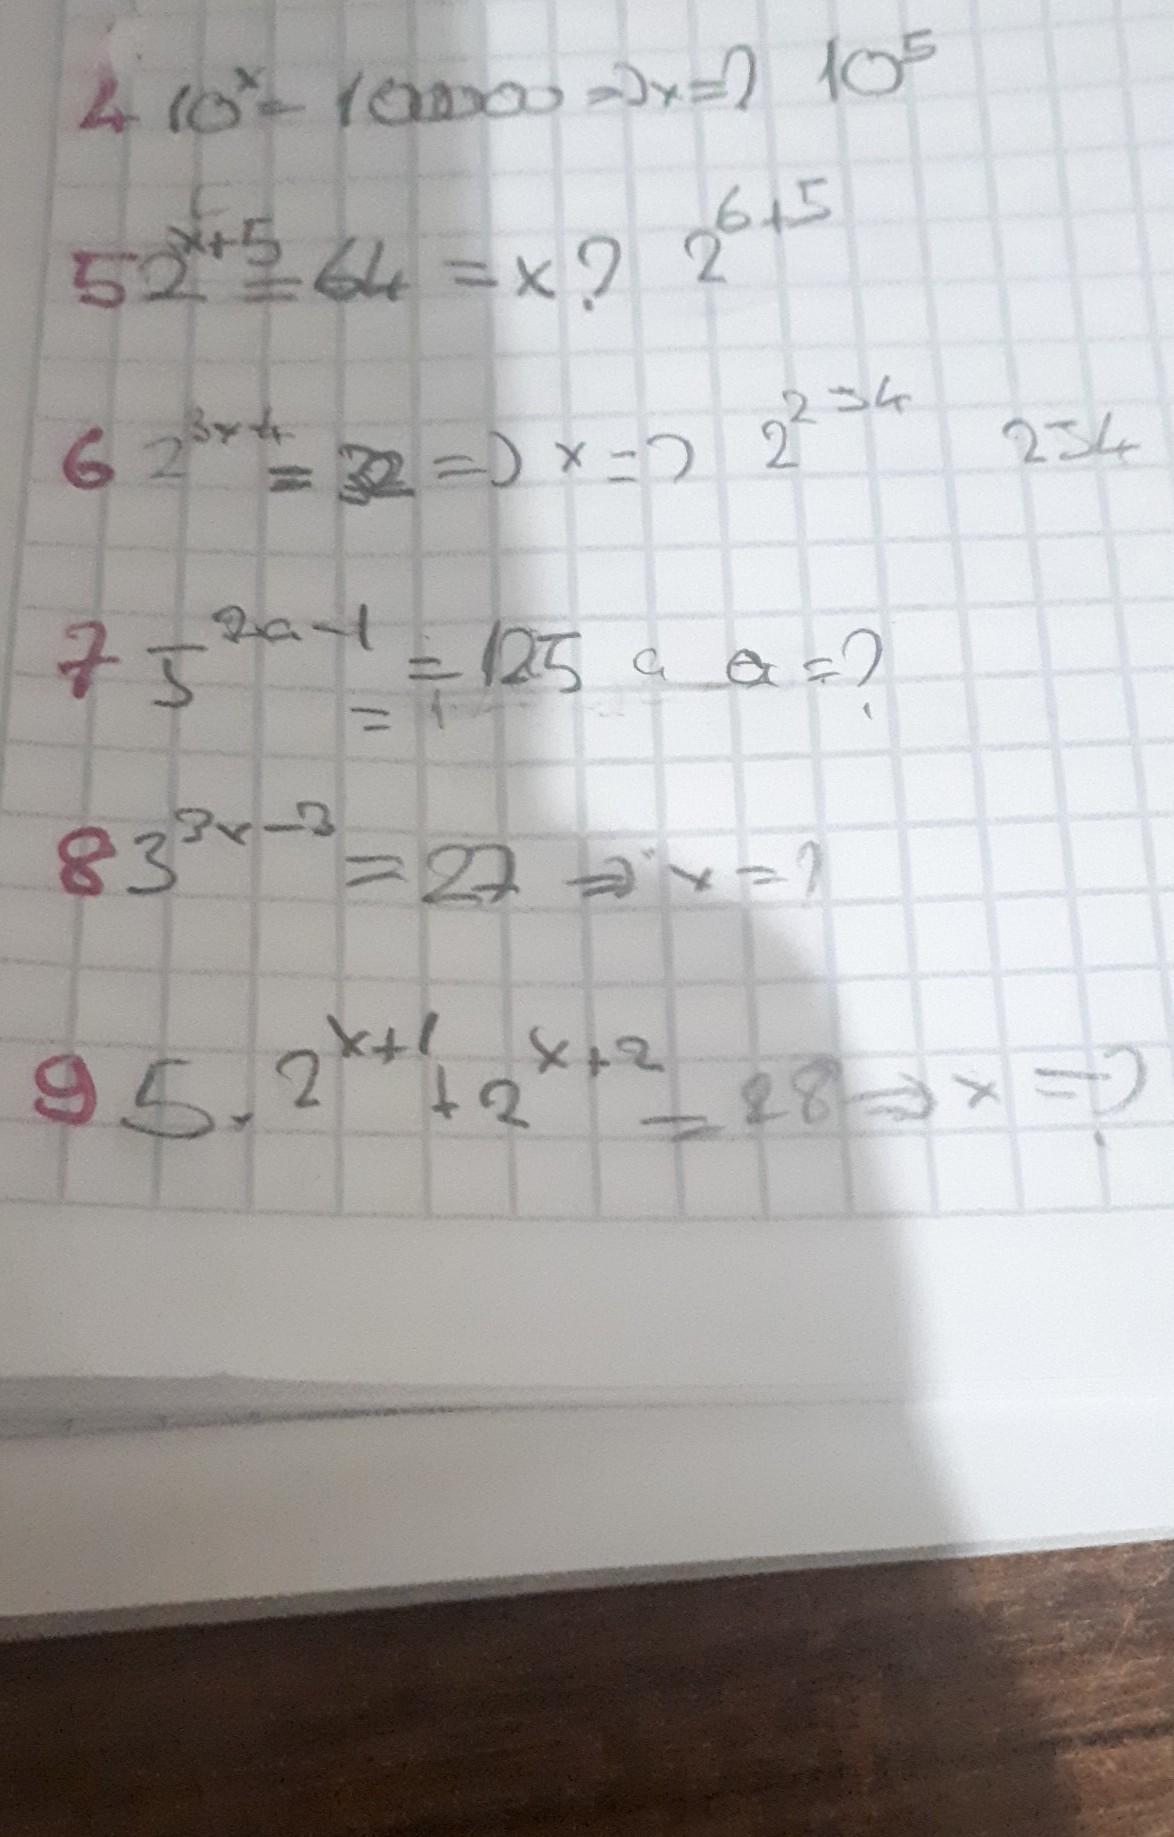 4 10^x = 100000 => x = ? 10^5
5 2^x+5 = 64 = x ? 2^6+5
6 2^3x+4 = 32 => x = ? 2^2=4 2=4
7 5^2a-1 = 125 a a = ?
8 3^3x-3 = 27 => x = ?
9 5. 2^x+1 + 2^x+2 = 28 => x = ?